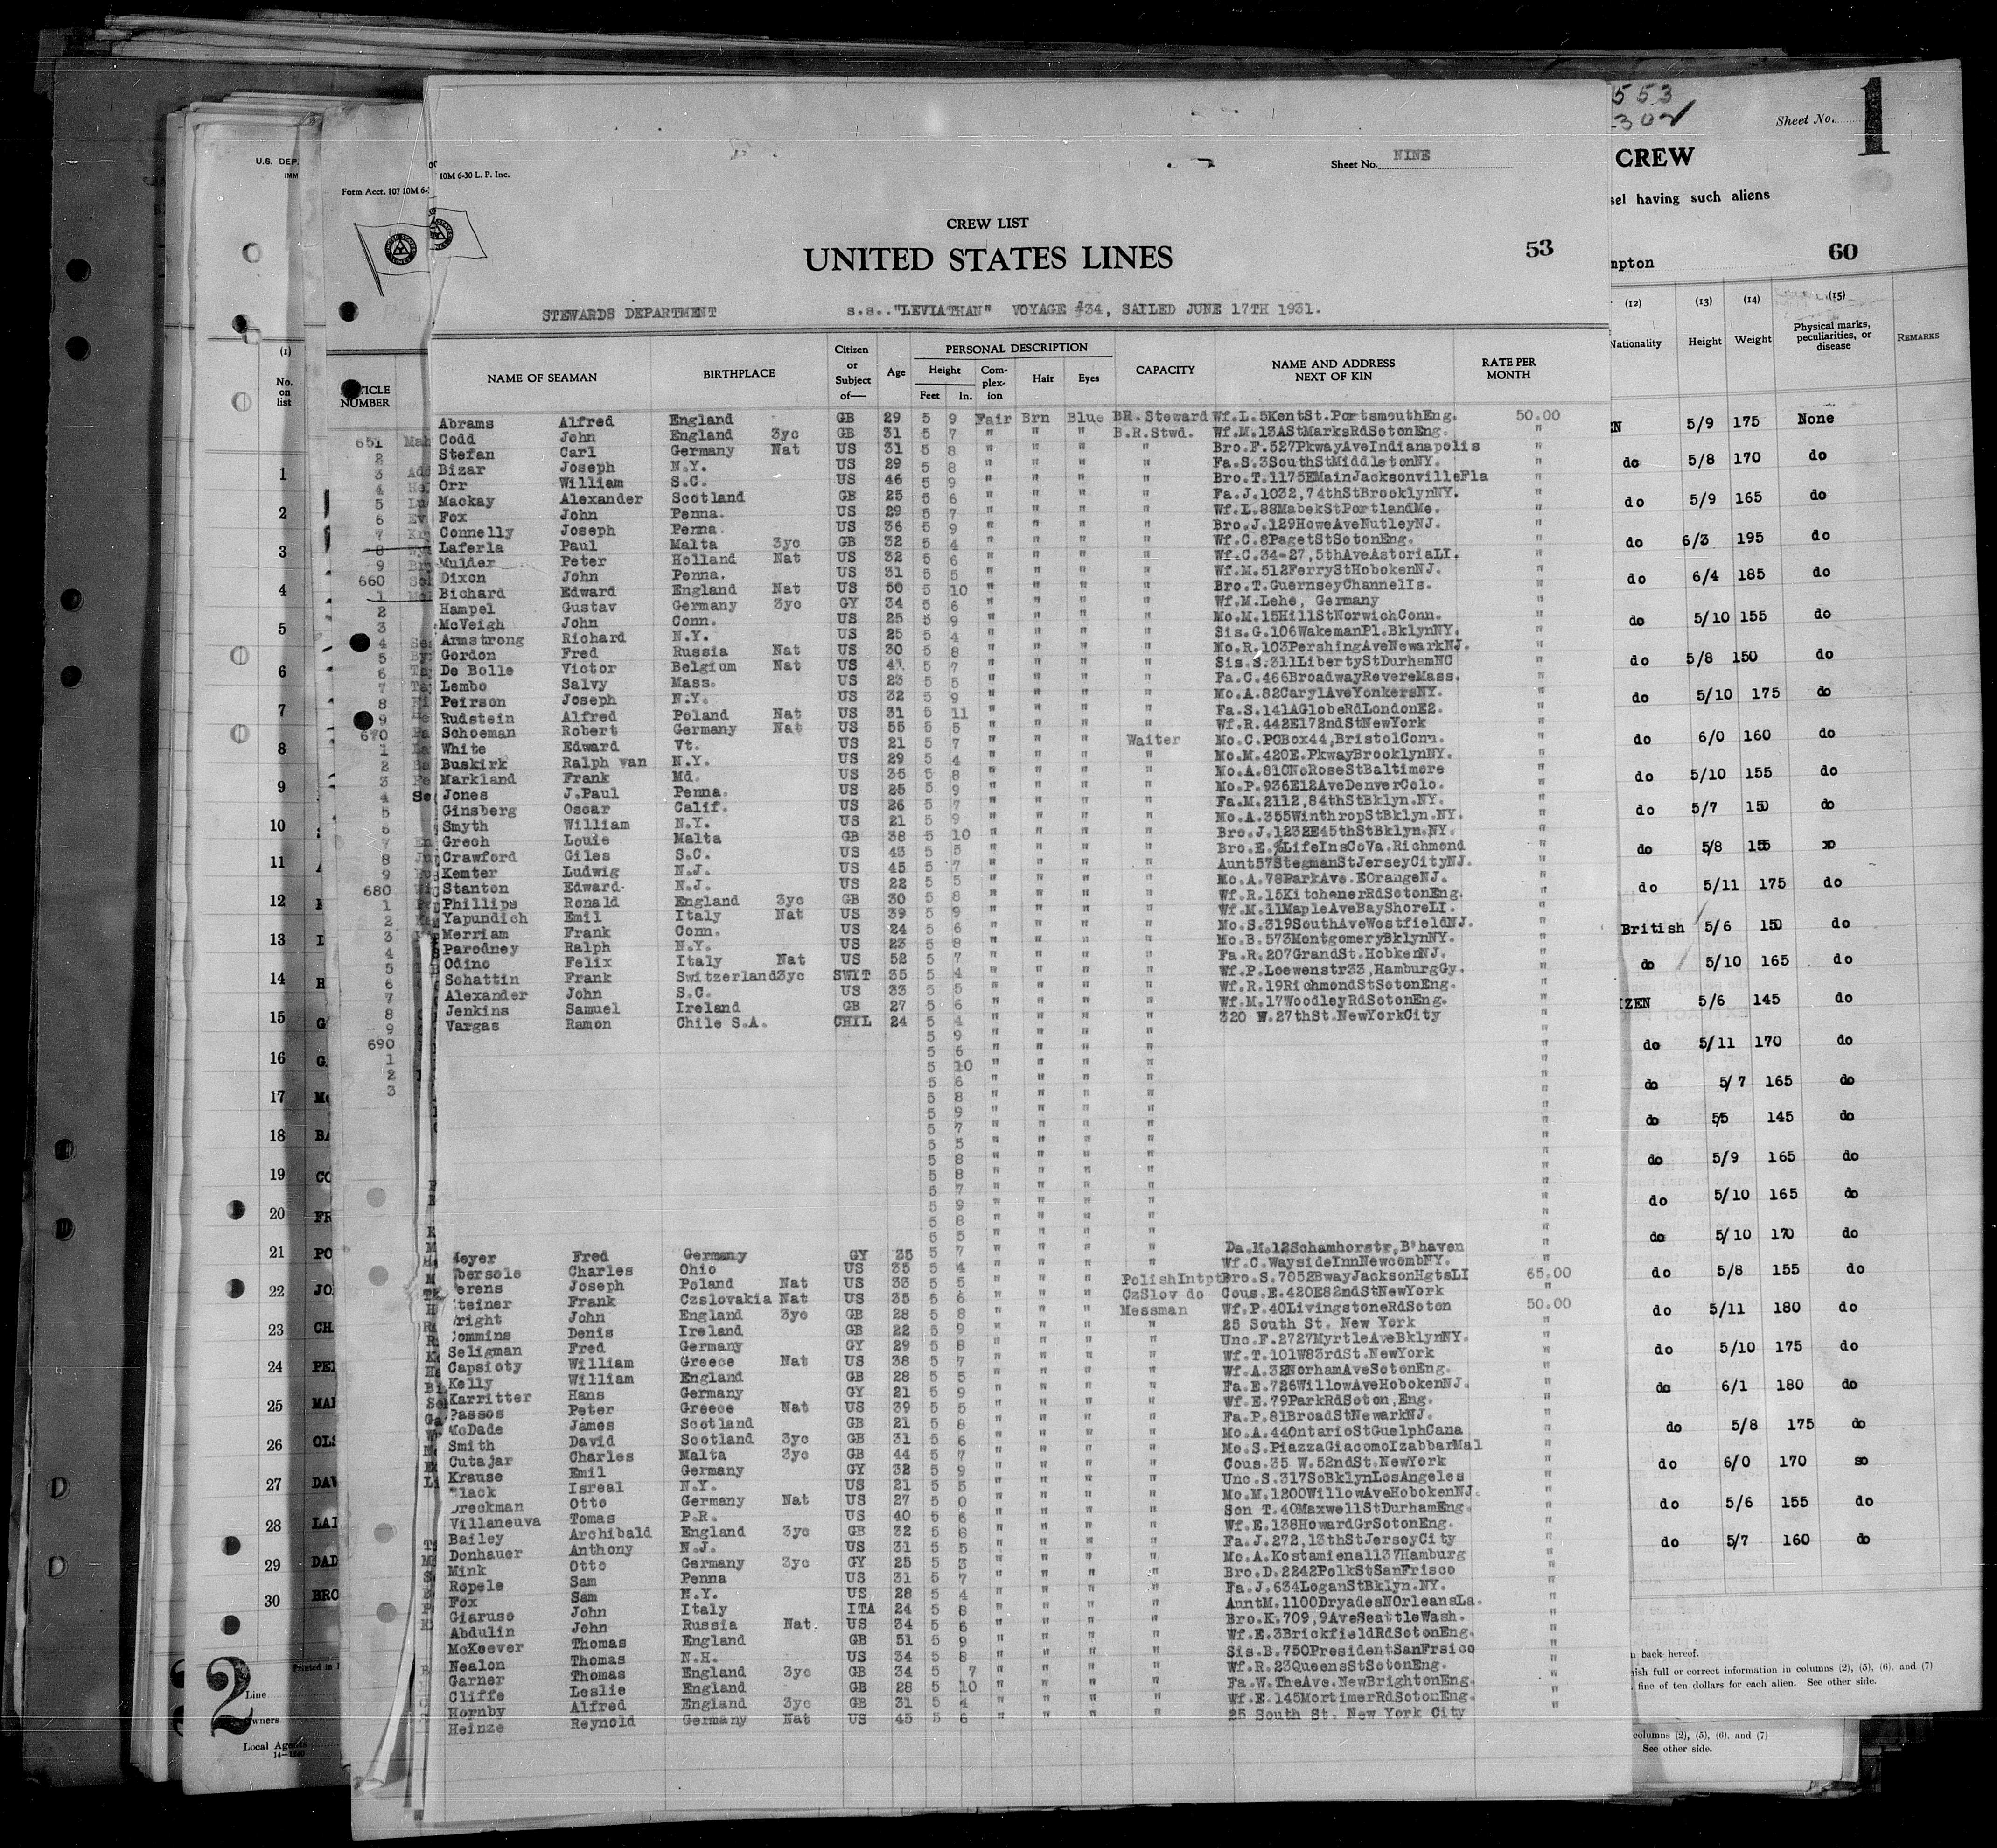 10M 6-30 L. P. Inc.
Sheet No. NINE
CREW LIST
UNITED STATES LINES
53
STEWARDS DEPARTMENT s.s.."LEVIATHAN" VOYAGE #34, SAILED JUNE 17TH 1931.
NAME OF SEAMAN BIRTHPLACE Citizen or Subject of— Age PERSONAL DESCRIPTION Height Feet In. Complexion Hair Eyes CAPACITY NAME AND ADDRESS NEXT OF KIN RATE PER MONTH
Abrams Alfred England GB 29 5 9 Fair Brn Blue BR. Steward Wf.L.5KentSt.PortsmouthEng. 50.00
Codd John England 3yc GB 31 5 7 " " " B.R.Stwd. Wf.M.13AStMarksRdSotonEng. "
Stefan Carl Germany Nat US 31 5 8 " " " " Bro.F.527PkwayAveIndianapolis "
Bizar Joseph N.Y. US 29 5 8 " " " " Fa.S.3SouthStMiddletonNY. "
Orr William S.C. US 46 5 9 " " " " Bro.T.1175EMainJacksonvilleFla "
Mackay Alexander Scotland GB 25 5 6 " " " " Fa.J.1032,74thStBrooklynNY. "
Fox John Penna. US 29 5 7 " " " " Wf.L.88MabekStPortlandMe. "
Connelly Joseph Penna. US 36 5 9 " " " " Bro.J.129HoweAveNutleyNJ. "
Laferla Paul Malta 3yc GB 32 5 4 " " " " Wf.C.8PagetStSotonEng. "
Mulder Peter Holland Nat US 32 5 6 " " " " Wf.C.34-27,5thAveAstoriaLI. "
Dixon John Penna. US 31 5 5 " " " " Wf.M.512FerryStHobokenNJ. "
Bichard Edward England Nat US 50 5 10 " " " " Bro.T.GuernseyChannelIs. "
Hampel Gustav Germany 3yc GY 34 5 6 " " " " Wf.M.Lehe, Germany "
McVeigh John Conn. US 25 5 9 " " " " Mo.M.15HillStNorwichConn. "
Armstrong Richard N.Y. US 25 5 4 " " " " Sis.G.106WakemanPl.BklynNY. "
Gordon Fred Russia Nat US 30 5 8 " " " " Mo.R.103PershingAveNewarkNJ. "
De Bolle Victor Belgium Nat US 41 5 7 " " " " Sis.S.311LibertyStDurhamNC "
Lembo Salvy Mass. US 23 5 5 " " " " Fa.C.466BroadwayRevereMass. "
Peirson Joseph N.Y. US 32 5 9 " " " " Mo.A.82CarylAveYonkersNY. "
Rudstein Alfred Poland Nat US 31 5 11 " " " " Fa.S.141AGlobeRdLondonE2. "
Schoeman Robert Germany Nat US 55 5 5 " " " " Wf.R.442E172ndStNewYork "
White Edward Vt. US 21 5 7 " " " Waiter Mo.C.POBox44,BristolConn. "
Buskirk Ralph van N.Y. US 29 5 4 " " " " Mo.M.420E.PkwayBrooklynNY. "
Markland Frank Md. US 35 5 8 " " " " Mo.A.810NoRoseStBaltimore "
Jones J.Paul Penna. US 25 5 9 " " " " Mo.P.936E12AveDenverColo. "
Ginsberg Oscar Calif. US 26 5 7 " " " " Fa.M.2112,84thStBklyn.NY. "
Smyth William N.Y. US 21 5 9 " " " " Mo.A.355WinthropStBklyn.NY. "
Grech Louie Malta GB 38 5 10 " " " " Bro.J.1232E45thStBklyn.NY. "
Crawford Giles S.C. US 43 5 5 " " " " Bro.E.%LifeInsCoVa.Richmond "
Kemter Ludwig N.J. US 45 5 7 " " " " Aunt57StegmanStJerseyCityNJ. "
Stanton Edward N.J. US 22 5 5 " " " " Mo.A.78ParkAve.EOrangeNJ. "
Phillips Ronald England 3yc GB 30 5 8 " " " " Wf.R.15KitchenerRdSotonEng. "
Yapundich Emil Italy Nat US 39 5 9 " " " " Wf.M.11MapleAveBayShoreLI. "
Merriam Frank Conn. US 24 5 6 " " " " Mo.S.319SouthAveWestfieldNJ. "
Parodney Ralph N.Y. US 23 5 8 " " " " Mo.B.573MontgomeryBklynNY. "
Odino Felix Italy Nat US 52 5 7 " " " " Fa.R.207GrandSt.HobkenNJ. "
Schattin Frank Switzerland3yc SWIT 35 5 4 " " " " Wf.P.Loewenstr33,HamburgGy. "
Alexander John S.C. US 33 5 5 " " " " Wf.R.19RichmondStSotonEng. "
Jenkins Samuel Ireland GB 27 5 6 " " " " Wf.M.17WoodleyRdSotonEng. "
Vargas Ramon Chile S.A. CHIL 24 5 4 " " " " 320 W.27thSt.NewYorkCity "
5 9 " " " " "
5 6 " " " " "
5 10 " " " " "
5 6 " " " " "
5 8 " " " " "
5 9 " " " " "
5 7 " " " " "
5 5 " " " " "
5 8 " " " " "
5 8 " " " " "
5 7 " " " " "
5 9 " " " " "
5 8 " " " " "
5 5 " " " " "
eyer Fred Germany GY 35 5 7 " " " " Da.M.12Schamhorstr,B'haven "
bersole Charles Ohio US 35 5 4 " " " " Wf.C.WaysideInnNewcombNY. "
erens Joseph Poland Nat US 33 5 5 " " " PolishIntpt Bro.S.7052BwayJacksonHgtsLI 65.00
teiner Frank Czslovakia Nat US 35 5 6 " " " CzSlov do Cous.E.420E82ndStNewYork "
right John England 3yc GB 28 5 8 " " " Messman Wf.P.40LivingstoneRdSoton 50.00
ommins Denis Ireland GB 22 5 9 " " " " 25 South St. New York "
Seligman Fred Germany GY 29 5 8 " " " " Unc.F.2727MyrtleAveBklynNY. "
Capsioty William Greece Nat US 38 5 7 " " " " Wf.T.101W83rdSt.NewYork "
Kelly William England GB 28 5 5 " " " " Wf.A.32NorhamAveSotonEng. "
Karritter Hans Germany GY 21 5 9 " " " " Fa.E.726WillowAveHobokenNJ. "
Passos Peter Greece Nat US 39 5 5 " " " " Wf.E.79ParkRdSoton,Eng. "
McDade James Scotland GB 21 5 8 " " " " Fa.P.81BroadStNewarkNJ. "
Smith David Scotland 3yc GB 31 5 6 " " " " Mo.A.44OntarioStGuelphCana "
Cutajar Charles Malta 3yc GB 44 5 7 " " " " Mo.S.PiazzaGiacomoIzabbarMal "
Krause Emil Germany GY 32 5 9 " " " " Cous.35 W.52ndSt.NewYork "
lack Isreal N.Y. US 21 5 5 " " " " Unc.S.317SoBklynLosAngeles "
reckman Otto Germany Nat US 27 5 0 " " " " Mo.M.1200WillowAveHobokenNJ. "
Villaneuva Tomas P.R. US 40 5 6 " " " " Son T.40MaxwellStDurhamEng. "
Bailey Archibald England 3yc GB 32 5 6 " " " " Wf.E.138HowardGrSotonEng. "
Donhauer Anthony N.J. US 31 5 5 " " " " Fa.J.272,13thStJerseyCity "
Mink Otto Germany 3yc GY 25 5 3 " " " " Mo.A.Kostamienal137Hamburg "
Ropele Sam Penna US 31 5 7 " " " " Bro.D.2242PolkStSanFrisco "
Fox Sam N.Y. US 28 5 4 " " " " Fa.J.634LoganStBklyn.NY. "
Giaruso John Italy ITA 24 5 8 " " " " AuntM.1100DryadesNOrleansLa. "
Abdulin John Russia Nat. US 34 5 6 " " " " Bro.K.709,9AveSeattleWash. "
McKeever Thomas England GB 51 5 9 " " " " Wf.E.3BrickfieldRdSotonEng. "
Nealon Thomas N.H. US 34 5 8 " " " " Sis.B.750PresidentSanFrsico "
Garner Thomas England 3yc GB 34 5 7 " " " " Wf.R.23QueensStSotonEng. "
Cliffe Leslie England GB 28 5 10 " " " " Fa.W.TheAve.NewBrightonEng. "
Hornby Alfred England 3yc GB 31 5 4 " " " " Wf.E.145MortimerRdSotonEng. "
Heinze Reynold Germany Nat US 45 5 6 " " " " 25 South St. New York City "
U.S. DEP.
IMM
Form Acct. 107 10M 6-
(1)
No. on list
ARTICLE NUMBER
651
2
3
4
5
6
7
8
9
660
1
2
3
4
5
6
7
8
9
670
1
2
3
4
5
6
7
8
9
680
1
2
3
4
5
6
7
8
9
690
1
2
3
1
2
3
4
5
6
7
8
9
10
11
12
13
14
15
16
17
18
19
20
21 PO
22 JO
23 CH
24 PE
25 MA
26 OLS
27 DAV
28 LAI
29 DAD
30 BRO
2
Line
Owners
Local Agents
553
302
Sheet No. 1
CREW
sel having such aliens
mpton 60
(12) (13) (14) (15)
Nationality Height Weight Physical marks, peculiarities, or disease REMARKS
EN 5/9 175 None
do 5/8 170 do
do 5/9 165 do
do 6/3 195 do
do 6/4 185 do
do 5/10 155 do
do 5/8 150 do
do 5/10 175 do
do 6/0 160 do
do 5/10 155 do
do 5/7 150 do
do 5/8 155
do 5/11 175 do
British 5/6 150 do
do 5/10 165 do
IZEN 5/6 145 do
do 5/11 170 do
do 5/7 165 do
do 5/5 145 do
do 5/9 165 do
do 5/10 165 do
do 5/10 170 do
do 5/8 155 do
do 5/11 180 do
do 5/10 175 do
do 6/1 180 do
do 5/8 175 do
do 6/0 170 so
do 5/6 155 do
do 5/7 160 do
n back hereof.
ish full or correct information in columns (2), (5), (6), and (7)
fine of ten dollars for each alien. See other side.
columns (2), (5), (6), and (7)
See other side.